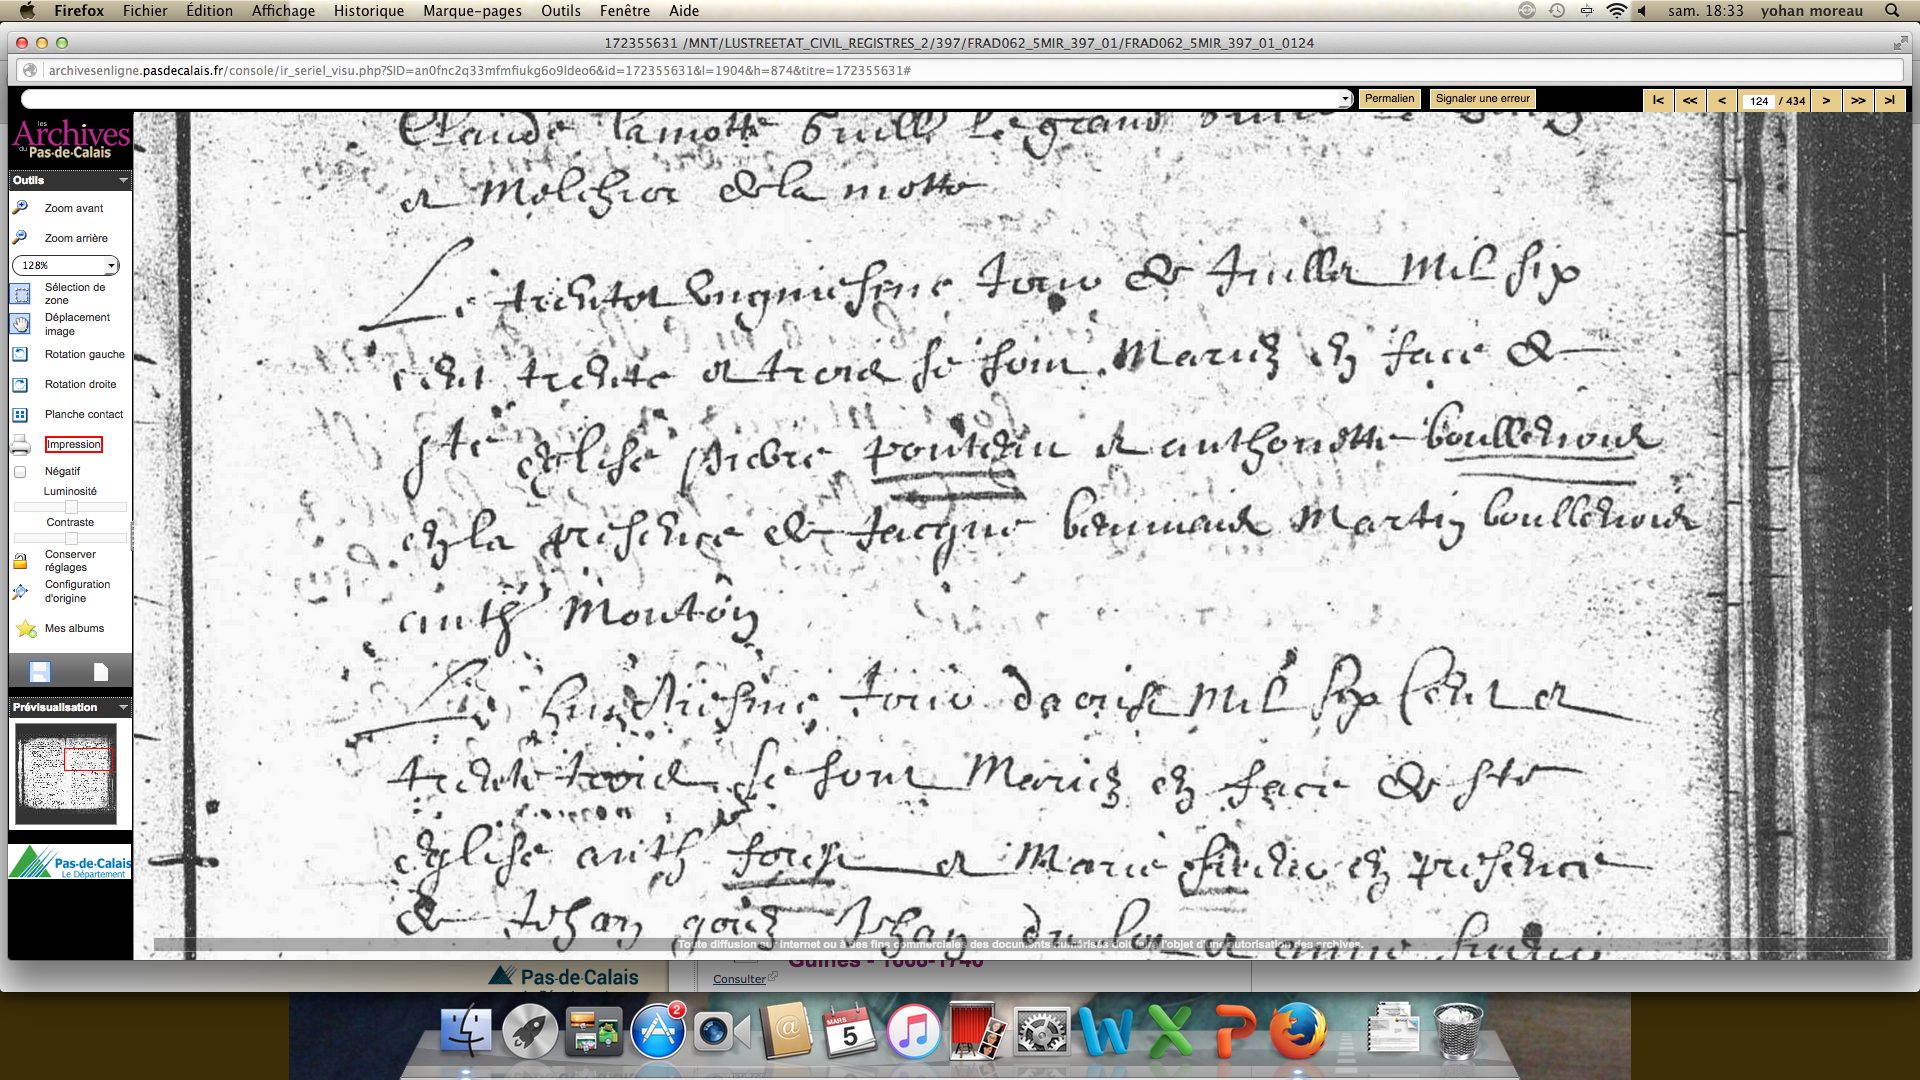 Firefox Fichier Édition Affichage Historique Marque-pages Outils Fenêtre Aide sam. 18:33 yohan moreau
172355631 /MNT/LUSTREETAT_CIVIL_REGISTRES_2/397/FRAD062_5MIR_397_01/FRAD062_5MIR_397_01_0124
archivesenligne.pasdecalais.fr/console/ir_seriel_visu.php?SID=an0fnc2q33mfmfiukg6o9ldeo6&id=172355631&l=1904&h=874&titre=172355631#
Permalien Signaler une erreur |< << < 124 / 434 > >> >|
les Archives du Pas-de-Calais
Outils
Zoom avant
Zoom arrière
128%
Sélection de zone
Déplacement image
Rotation gauche
Rotation droite
Planche contact
Impression
Négatif
Luminosité
Contraste
Conserver réglages
Configuration d'origine
Mes albums
Prévisualisation
Pas-de-Calais
Le Département
Claude lamotte Guill le grand
et Melchior de la motte
Le trentet ungniesme Jour de Juillet Mil six
cent trente et trois se sont Mariez en face de
ste eglise piere ponteau et anthonette boullenois
en la presence de Jacque Martin boullenois
anth Mouton
Le Jour davril Mil six Cent et
trente trois se sont Mariez en face de ste
eglise anth et Marie en presence
de Jehan Jehan du
Toute diffusion sur Internet ou à des fins commerciales des documents numérisés doit faire l'objet d'une autorisation des archives.
Pas-de-Calais
Guînes - 1668-1740
Consulter
2
MARS
5